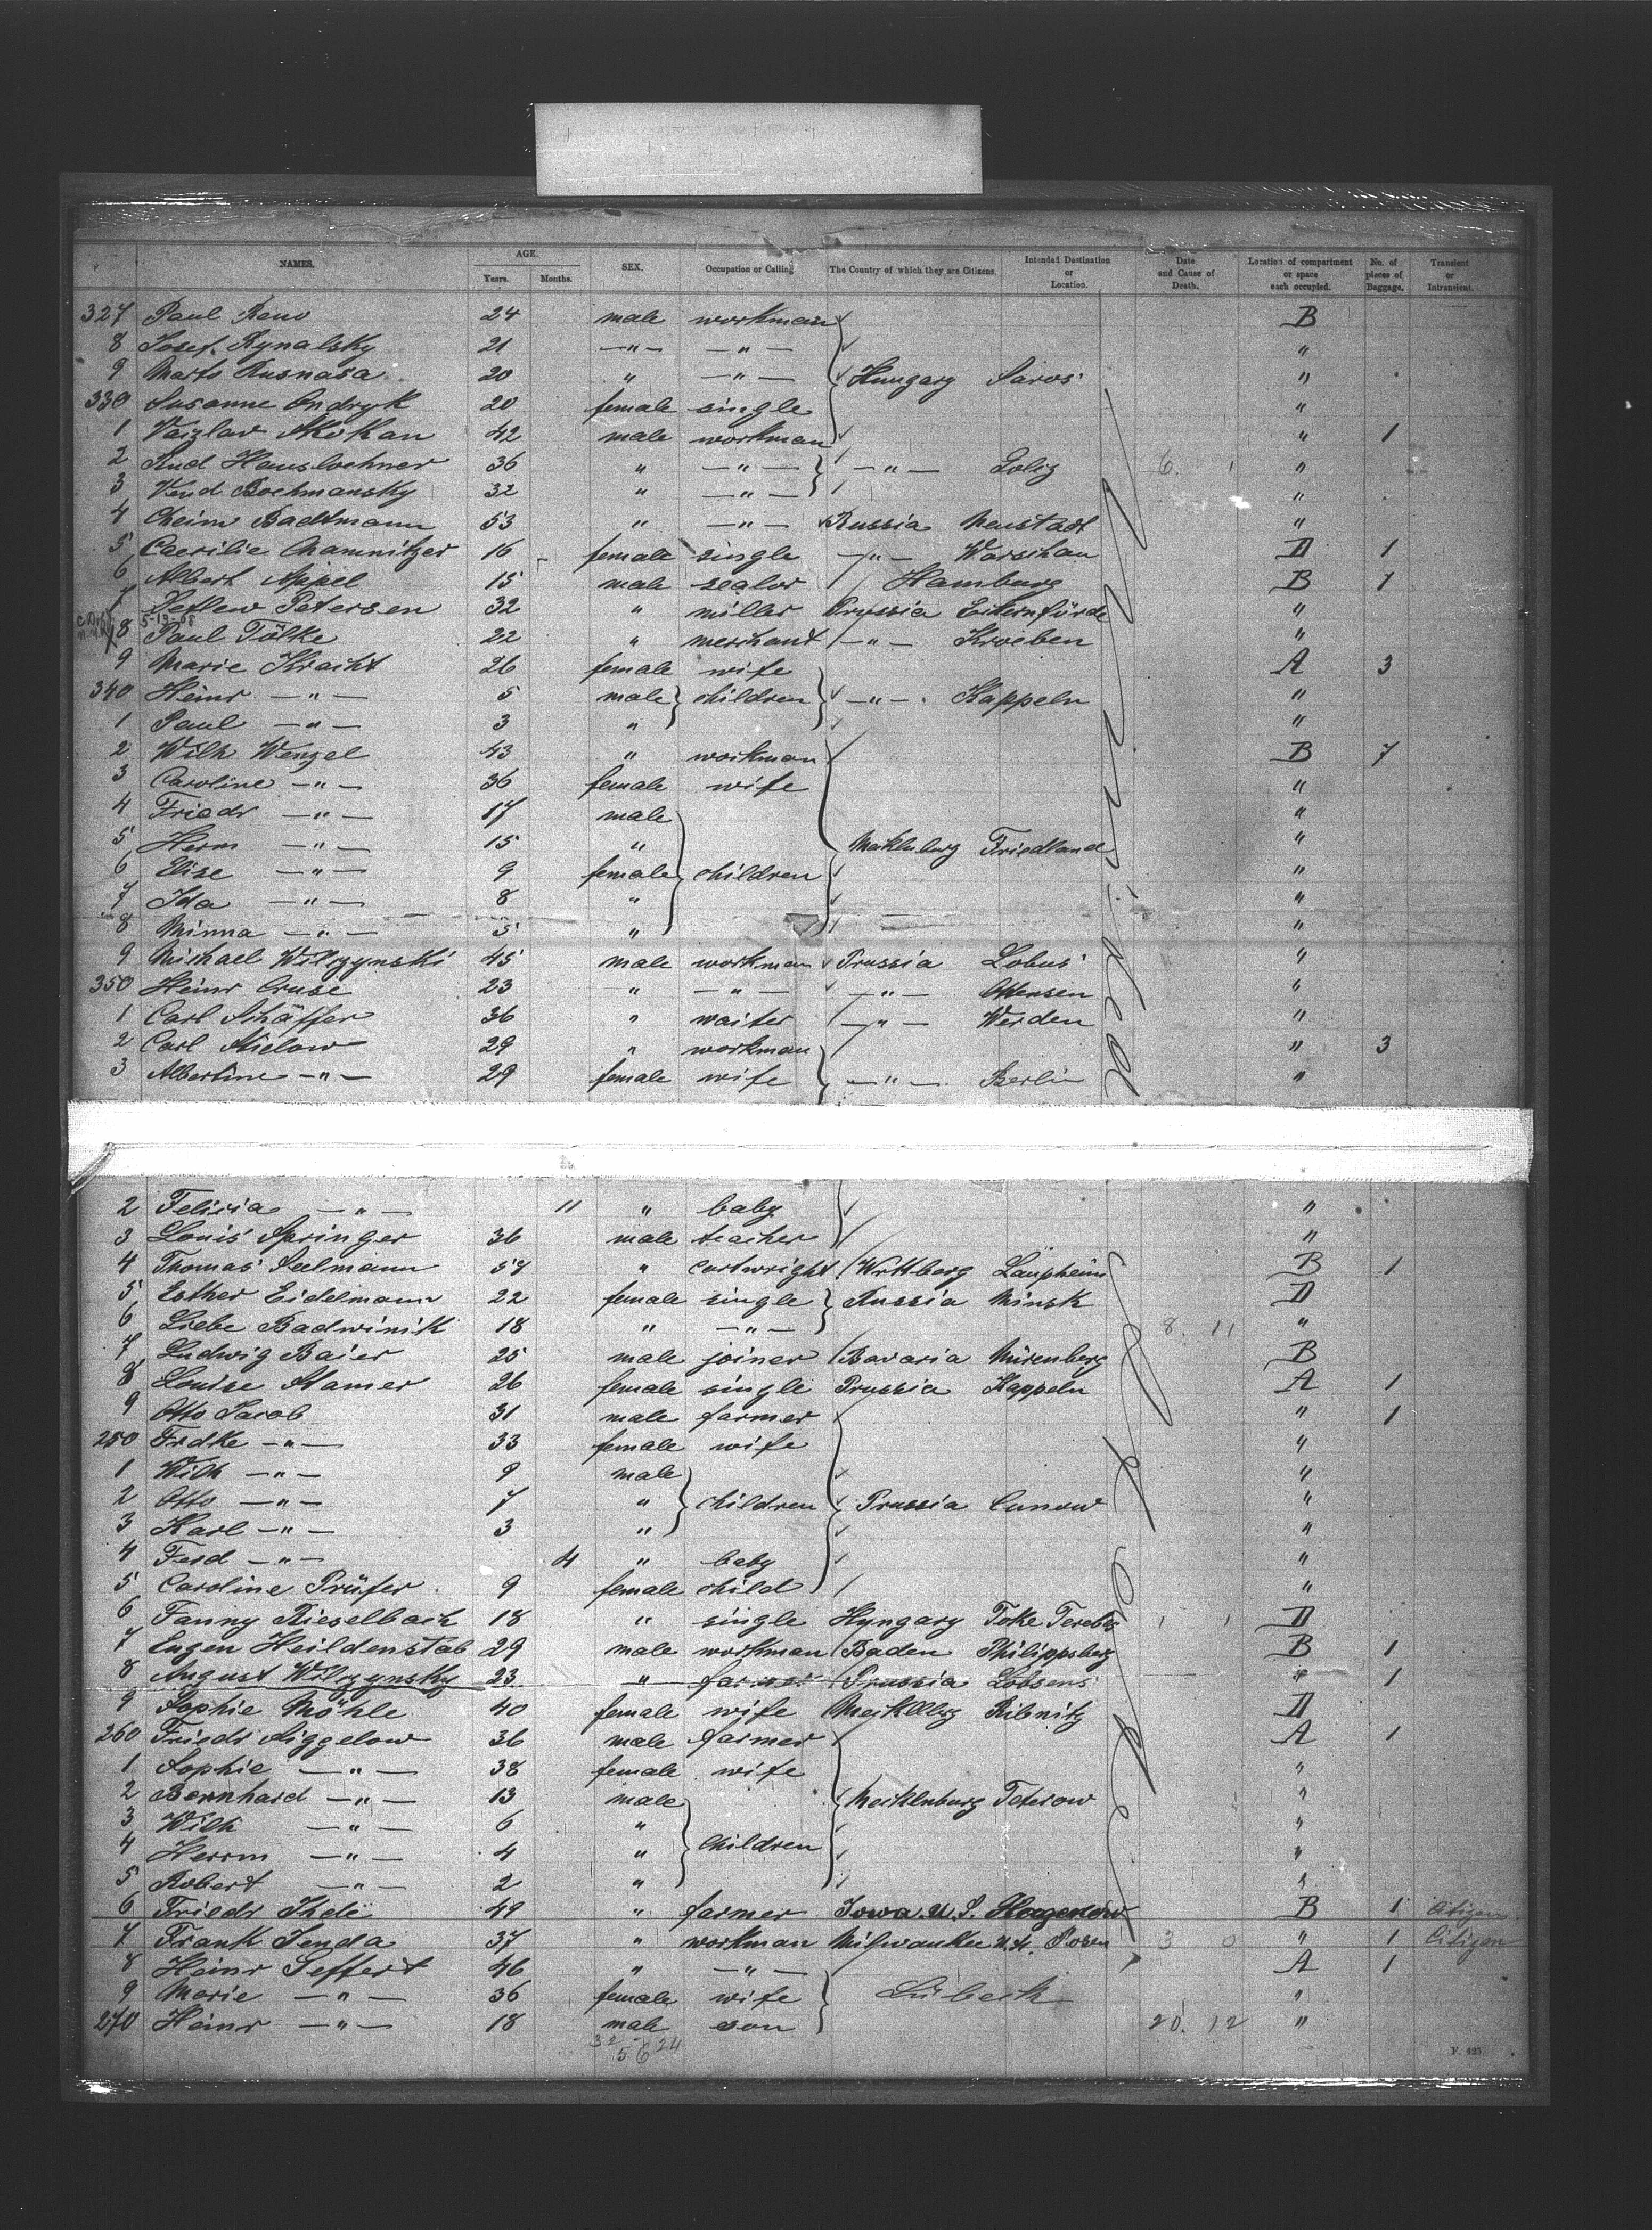 NAMES. AGE. Years. Months. SEX. Occupation or Calling. The Country of which they are Citizens. Intended Destination or Location. Date and Cause of Death. Location of compartment or space each occupied. No. of pieces of Baggage. Transient or Intransient.
327 Paul 24 male workman B
8 Josef Rynalsky 21 —"— —"— "
9 20 " —"— Hungary Saros "
330 Susanne Ondryk 20 female single "
1 42 male workman " 1
2 Rud Hauslochner 36 " —"— —"— 6. 1 "
3 Bochmansky 32 " —"— "
4 Cheim Badtmann 53 " —"— Russia Neustadt "
5 Caecilie Chamnitzer 16 female single —"— Warschau D 1
6 Albert Appel 15 male Hamburg B 1
7 Detlew Petersen 32 " miller Prussia Eckernförde "
5-13-08
8 Paul Tölke 22 " merchant —"— Kroeben "
9 Marie Kracht 26 female wife A 3
340 Heinr —"— 5 male children —"— Kappeln "
1 Paul —"— 3 " "
2 Wilh Wenzel 43 " workman B 7
3 Caroline —"— 36 female wife "
4 Friedr —"— 17 male "
5 Herm —"— 15 " Mecklenburg Friedland "
6 Elise —"— 9 female children "
7 Ida —"— 8 " "
8 Minna —"— 5 " "
9 Michael Wilczynski 45 male workman Prussia Lobus "
350 Heinr Cruse 23 " —"— —"— Ottensen "
1 Carl Schäffer 36 " waiter —"— Werden "
2 Carl Nielow 29 " workman " 3
3 Albertine —"— 29 female wife —"— Berlin "
2 Felicia —"— 11 " baby "
3 Louis Springer 36 male teacher "
4 Thomas Seelmann 57 " cartwright Wrttberg Laupheim B 1
5 Esther Eidelmann 22 female single Russia Minsk D
6 Liebe Badwinik 18 " —"— 8. 11 "
7 Ludwig Baier 25 male joiner Bavaria Nürenberg B
8 Louise Hamer 26 female single Prussia Kappeln A 1
9 Otto Jacob 31 male farmer " 1
250 Frdke —"— 33 female wife "
1 Wilh —"— 9 male "
2 Otto —"— 7 " children Prussia Cunow "
3 Karl —"— 3 " "
4 Ferd —"— 4 " baby "
5 Caroline Prüfer 9 female child "
6 Fanny Rieselbach 18 " single Hungary Toke Terebes 1 1 D
7 Eugen Heildenstab 29 male workman Baden Philippsberg B 1
8 August Wilczynsky 23 " farmer Prussia Lobsens " 1
9 Sophie Möhle 40 female wife Mecklbg Ribnitz D
260 Friedr Siggelow 36 male farmer A 1
1 Sophie —"— 38 female wife "
2 Bernhard —"— 13 male Mecklenburg Teterow "
3 Wilh —"— 6 " "
4 Herrm —"— 4 " children "
5 Robert —"— 2 " "
6 Friedr Thde 49 " farmer Iowa U.S. Hagenow B 1 Citizen
7 Frank Senda 37 " workman Milwaukee U.S. Posen 3 0 " 1 Citizen
8 Heinr Seffert 46 " —"— A 1
9 Marie —"— 36 female wife Lübeck "
270 Heinr —"— 18 male son 20. 12 "
32 24
56
F. 425